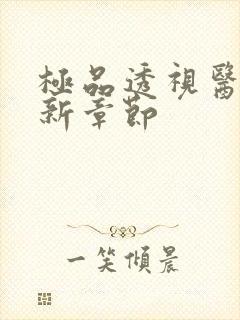 極品透視醫
新章節
一笑傾晨